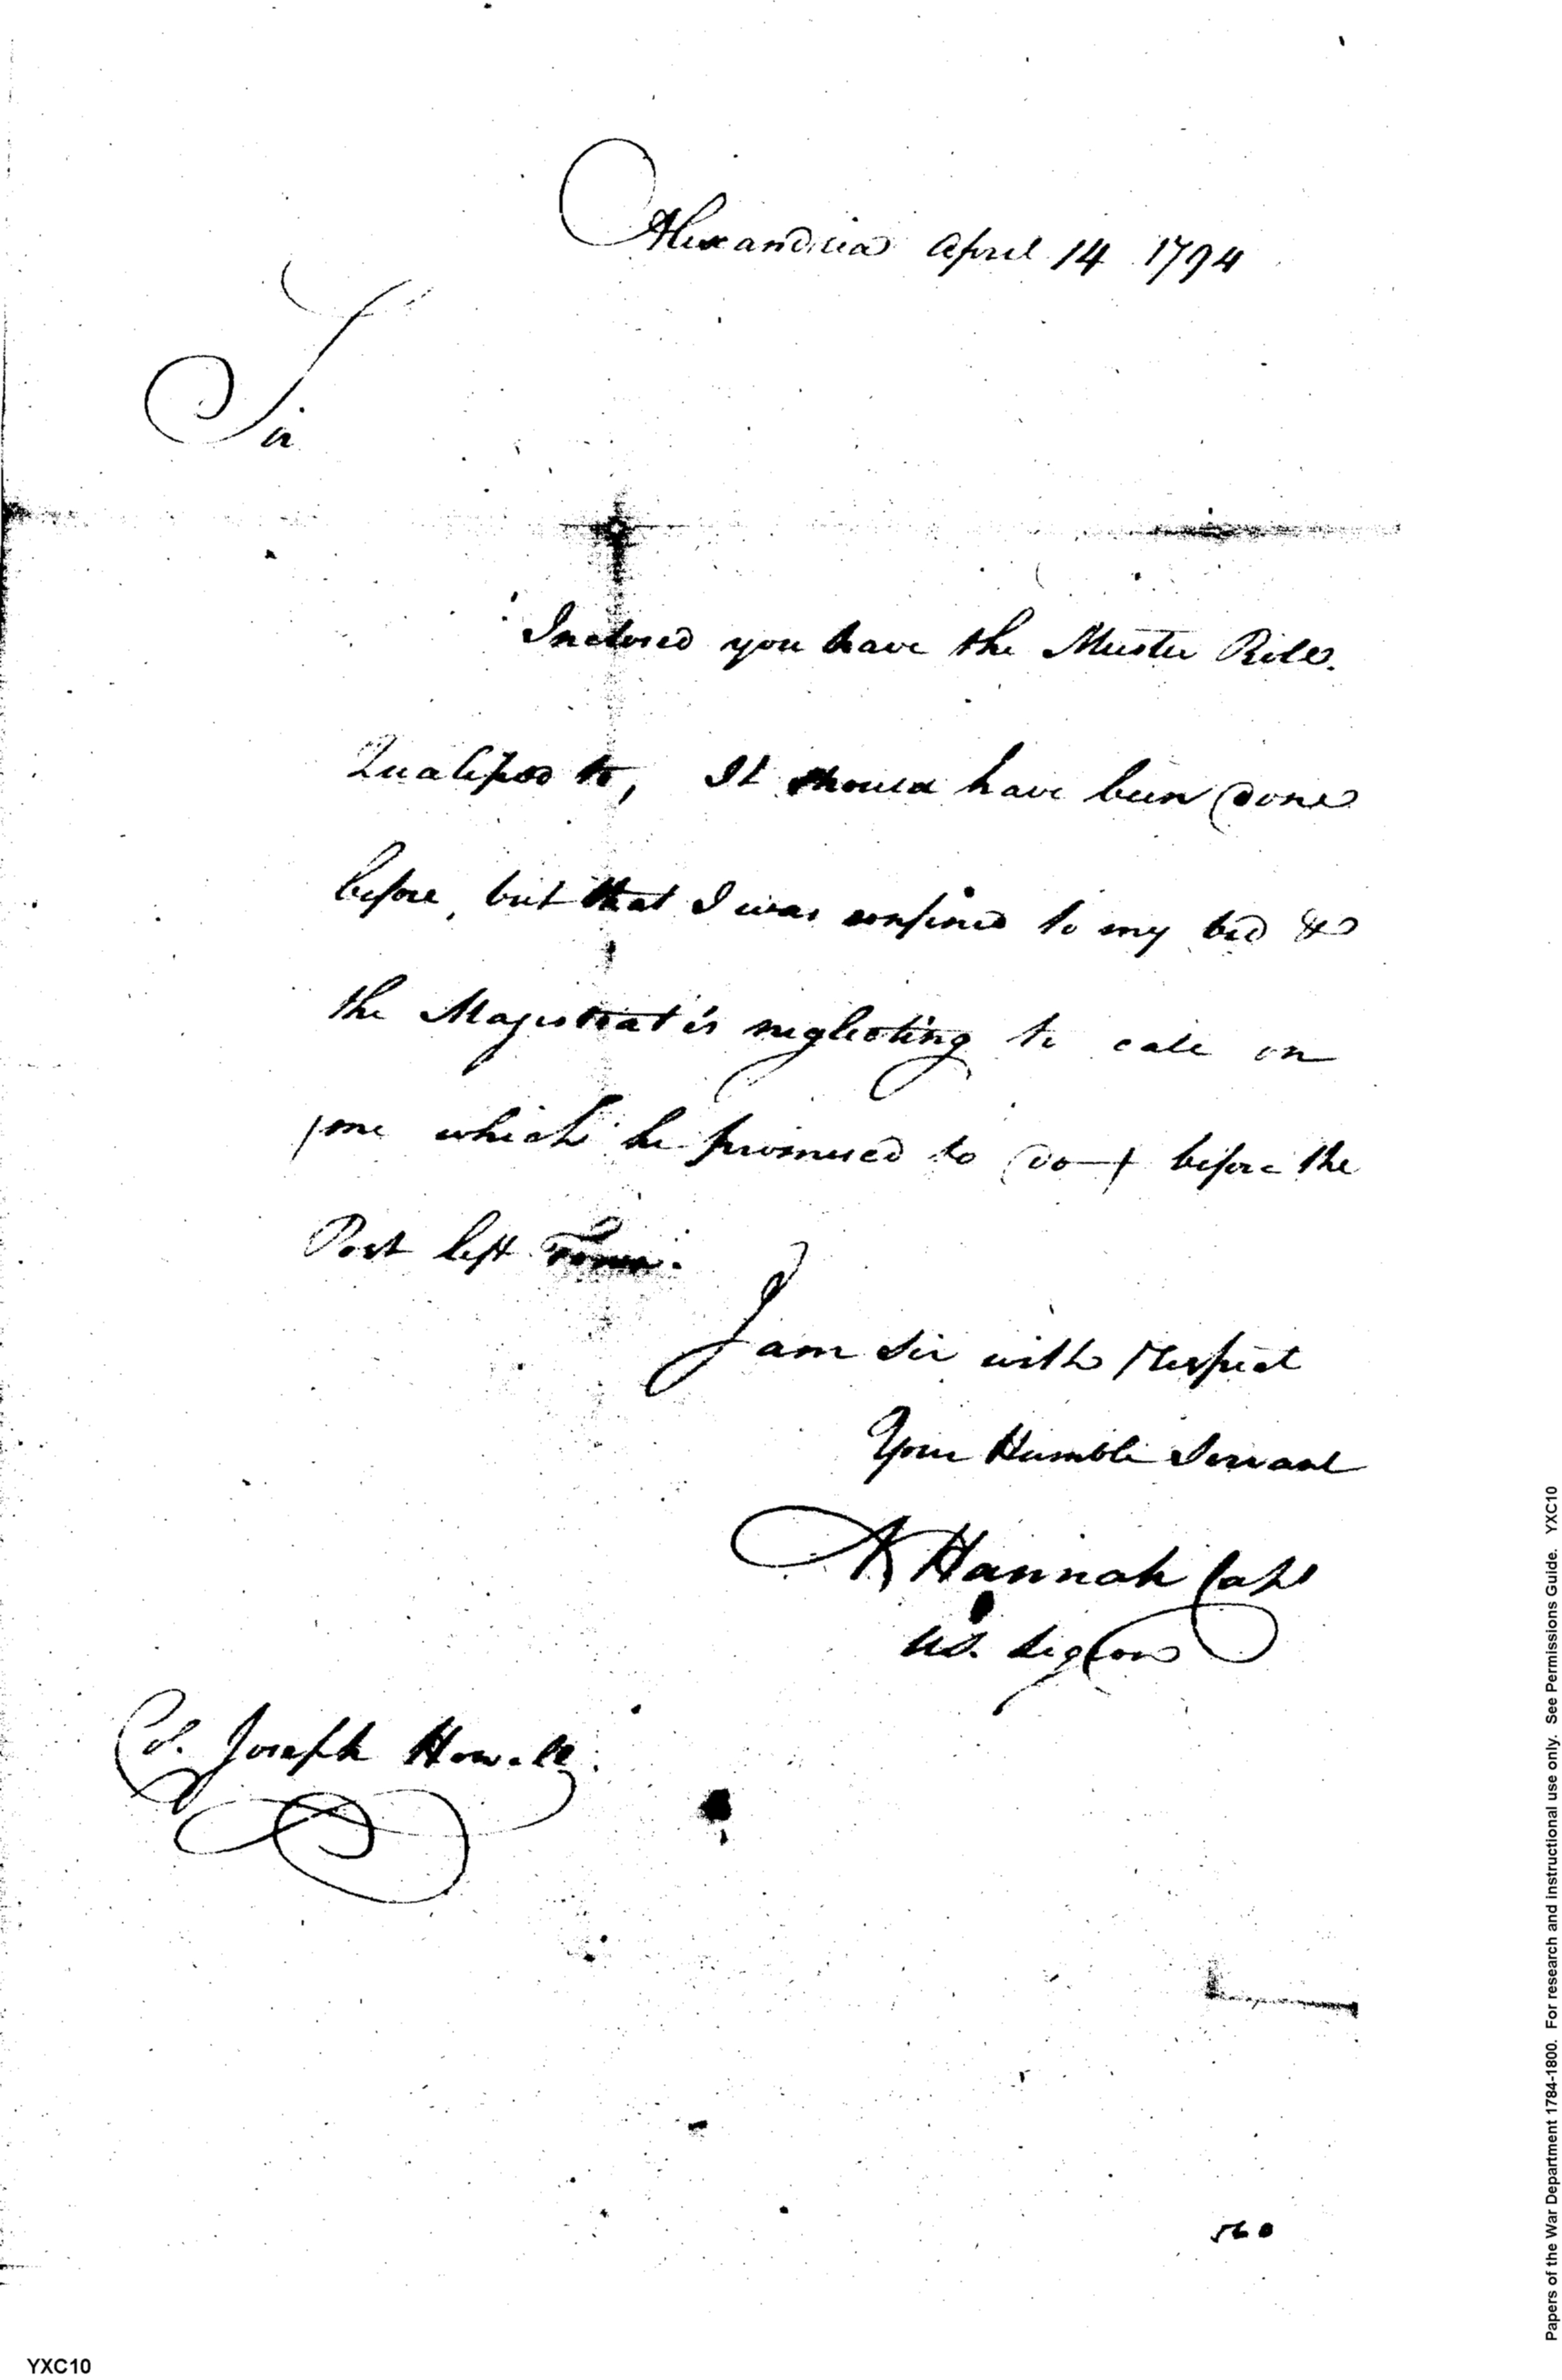 Alexandria April 14 1794
Sir
Inclosed you have the Muster Role
Qualified to, It should have been done
before, but that I was confined to my bed &
the Magestrat's neglecting to call on
me which he promised to do before the
Post left Town.
I am Sir with Respect
Your Humble Servant
Hannah Capt
US. Legion
Col. Joseph Howell
560
Papers of the War Department 1784-1800. For research and instructional use only. See Permissions Guide. YXC10
YXC10